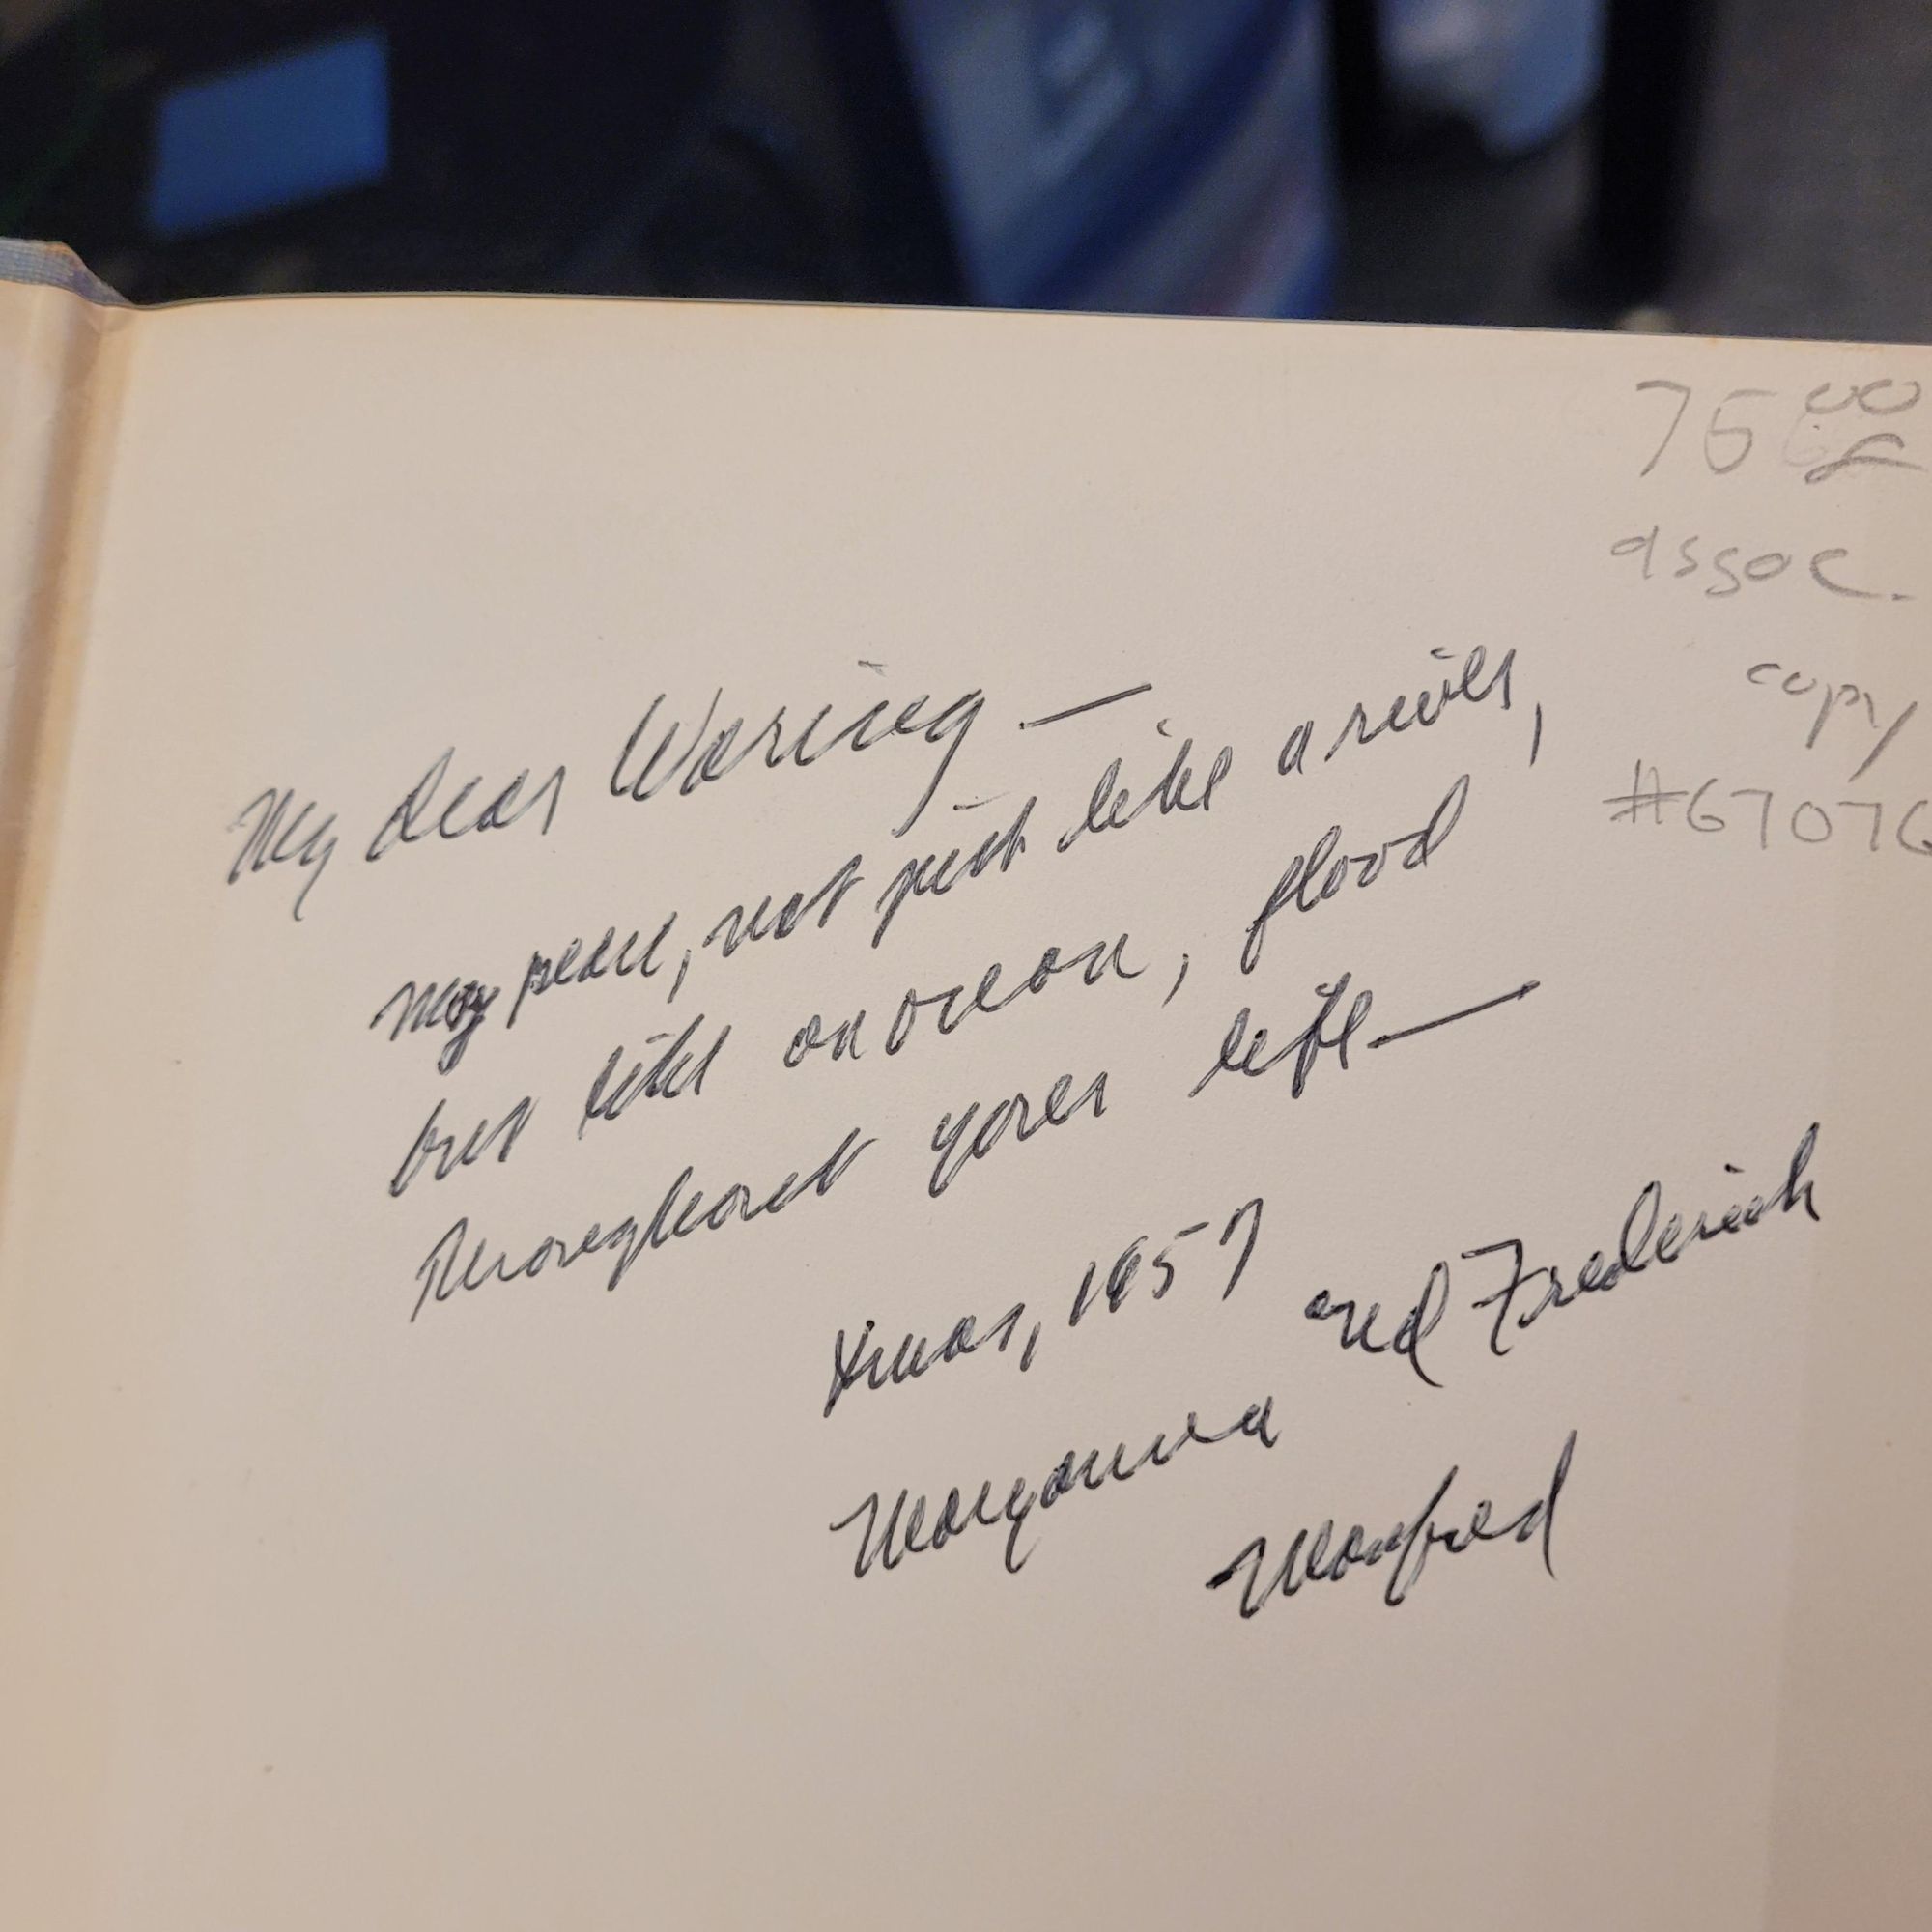 75 00
assoc.
copy
#67076
My dear Waring —
May peace, not just like a river,
but like an ocean, flood
throughout your life —
Xmas, 1957
Maryanna and Frederick
Manfred